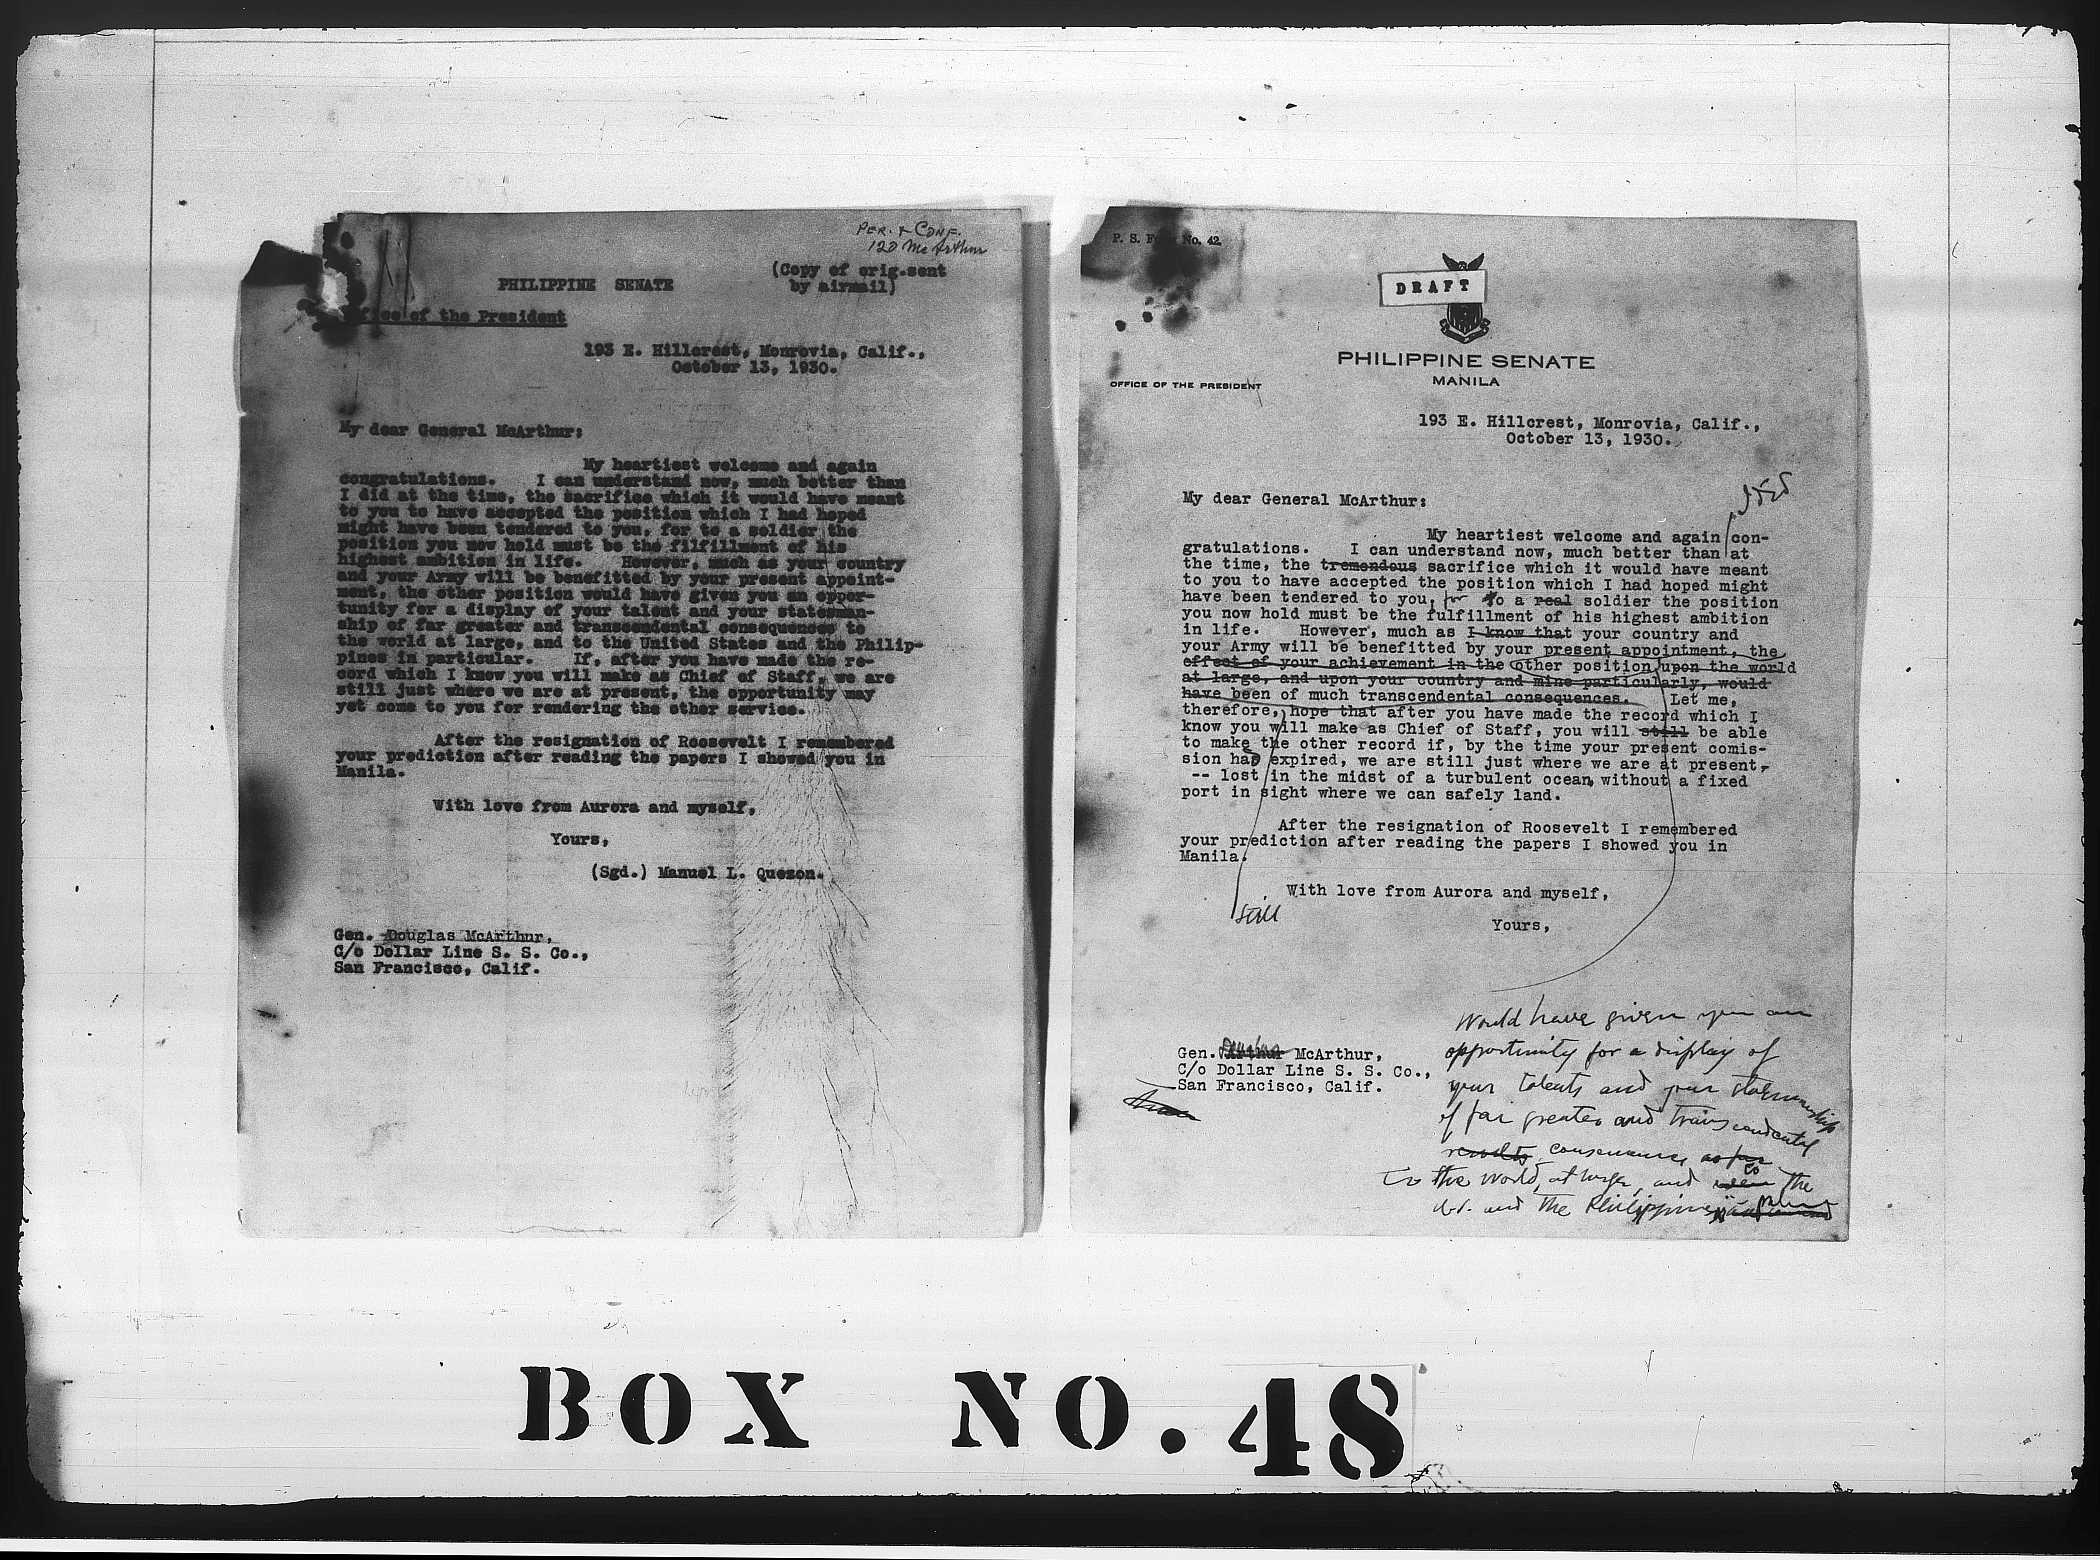 PER. & CONF.
120 McArthur
(Copy of orig.sent
by airmail)
PHILIPPINE SENATE
of the President
193 E. Hillcrest, Monrovia, Calif.,
October 13, 1930.
My dear General McArthur:
My heartiest welcome and again
congratulations. I can understand now, much better than
I did at the time, the sacrifice which it would have meant
to you to have accepted the position which I had hoped
might have been tendered to you, for to a soldier the
position you now hold must be the filfillment of his
highest ambition in life. However, much as your country
and your Army will be benefitted by your present appoint-
ment, the other position would have given you an oppor-
tunity for a display of your talent and your statesman-
ship of far greater and transcendental consequences to
the world at large, and to the United States and the Philip-
pines in particular. If, after you have made the re-
cord which I know you will make as Chief of Staff, we are
still just where we are at present, the opportunity may
yet come to you for rendering the other service.
After the resignation of Roosevelt I remembered
your prediction after reading the papers I showed you in
Manila.
With love from Aurora and myself,
Yours,
(Sgd.) Manuel L. Quezon.
Gen. Douglas McArthur,
C/o Dollar Line S. S. Co.,
San Francisco, Calif.
P. S. No. 42
DRAFT
PHILIPPINE SENATE
MANILA
OFFICE OF THE PRESIDENT
193 E. Hillcrest, Monrovia, Calif.,
October 13, 1930.
My dear General McArthur:
I did
My heartiest welcome and again con-
gratulations. I can understand now, much better than at
the time, the tremendous sacrifice which it would have meant
to you to have accepted the position which I had hoped might
have been tendered to you, for to a real soldier the position
you now hold must be the fulfillment of his highest ambition
in life. However, much as I know that your country and
your Army will be benefitted by your present appointment, the
effect of your achievement in the other position upon the world
at large, and upon your country and mine particularly, would
have been of much transcendental consequences. Let me,
therefore, hope that after you have made the record which I
know you will make as Chief of Staff, you will still be able
to make the other record if, by the time your present comis-
sion has expired, we are still just where we are at present,
-- lost in the midst of a turbulent ocean, without a fixed
port in sight where we can safely land.
After the resignation of Roosevelt I remembered
your prediction after reading the papers I showed you in
Manila.
With love from Aurora and myself,
still
Yours,
Would have given you an
Gen. Douglas Arthur McArthur,
C/o Dollar Line S. S. Co.,
San Francisco, Calif.
opportunity for a display of
your talents and your statesmanship
of far greater and transcendental
results consequences as far
to the world, at large, and to the
U.S. and the Philippines in
BOX NO. 48